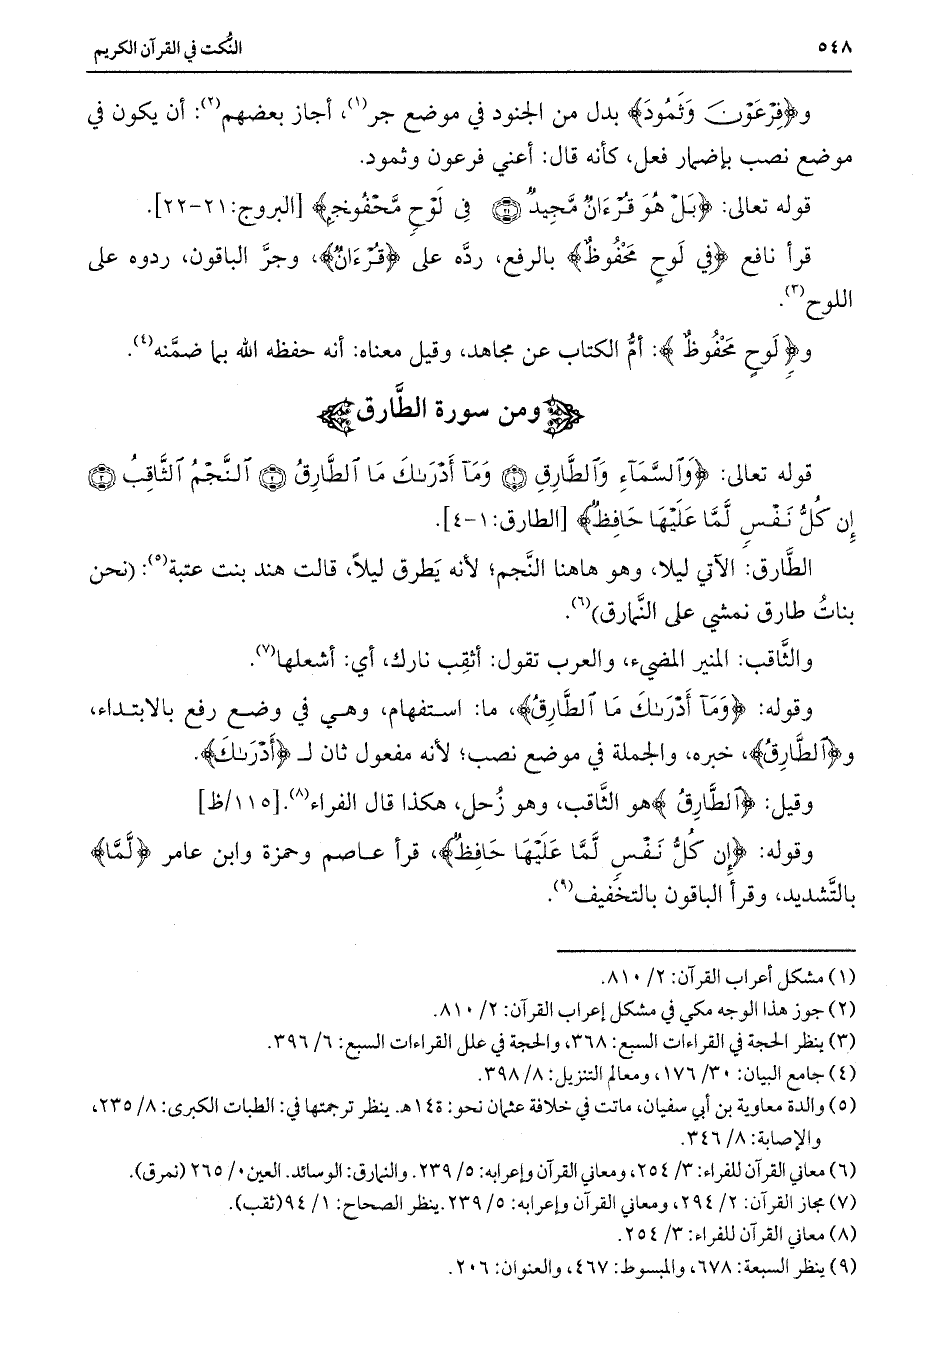 ٥٤٨ النُّكت في القرآن الكريم
و﴿فِرْعَوْنَ وَثَمُودَ﴾ بدل من الجنود في موضع جر(١)، أجاز بعضهم(٢): أن يكون في
موضع نصب بإضمار فعل، كأنه قال: أعني فرعون وثمود.
قوله تعالى: ﴿بَلْ هُوَ قُرْءَانٌ مَّجِيدٌ ۝٢١ فِي لَوْحٍ مَّحْفُوظٍ﴾ [البروج:٢١-٢٢].
قرأ نافع ﴿في لَوحٍ مَحْفُوظٌ﴾ بالرفع، ردَّه على ﴿قُرْءَانٌ﴾، وجرَّ الباقون، ردوه على
اللوح(٣).
و﴿لَوحٍ مَحْفُوظٌ﴾: أمُّ الكتاب عن مجاهد، وقيل معناه: أنه حفظه الله بما ضمَّنه(٤).
ومن سورة الطَّارق
قوله تعالى: ﴿وَٱلسَّمَآءِ وَٱلطَّارِقِ ۝١ وَمَآ أَدْرَىٰكَ مَا ٱلطَّارِقُ ۝٢ ٱلنَّجْمُ ٱلثَّاقِبُ ۝٣
إِن كُلُّ نَفْسٍ لَّمَّا عَلَيْهَا حَافِظٌ﴾ [الطارق:١-٤].
الطَّارق: الآتي ليلا، وهو هاهنا النَّجم؛ لأنه يَطرق ليلاً، قالت هند بنت عتبة(٥): (نحن
بناتُ طارق نمشي على النَّمارق)(٦).
والثَّاقب: المنير المضيء، والعرب تقول: أثقِب نارك، أي: أشعلها(٧).
وقوله: ﴿وَمَآ أَدْرَىٰكَ مَا ٱلطَّارِقُ﴾، ما: استفهام، وهي في وضع رفع بالابتداء،
و﴿ٱلطَّارِقُ﴾، خبره، والجملة في موضع نصب؛ لأنه مفعول ثان لـ ﴿أَدْرَىٰكَ﴾.
وقيل: ﴿ٱلطَّارِقُ﴾ هو الثَّاقب، وهو زُحل، هكذا قال الفراء(٨).[١١٥/ظ]
وقوله: ﴿إِن كُلُّ نَفْسٍ لَّمَّا عَلَيْهَا حَافِظٌ﴾، قرأ عاصم وحمزة وابن عامر ﴿لَّمَّا﴾
بالتَّشديد، وقرأ الباقون بالتخفيف(٩).
(١) مشكل أعراب القرآن: ٢/ ٨١٠.
(٢) جوز هذا الوجه مكي في مشكل إعراب القرآن: ٢/ ٨١٠.
(٣) ينظر الحجة في القراءات السبع: ٣٦٨، والحجة في علل القراءات السبع: ٦/ ٣٩٦.
(٤) جامع البيان: ٣٠/ ١٧٦، ومعالم التنزيل: ٨/ ٣٩٨.
(٥) والدة معاوية بن أبي سفيان، ماتت في خلافة عثمان نحو: ١٤ةهـ. ينظر ترجمتها في: الطبات الكبرى: ٨/ ٢٣٥،
والإصابة: ٨/ ٣٤٦.
(٦) معاني القرآن للفراء: ٣/ ٢٥٤، ومعاني القرآن وإعرابه: ٥/ ٢٣٩. والنمارق: الوسائد. العين٠/ ٢٦٥ (نمرق).
(٧) مجاز القرآن: ٢/ ٢٩٤، ومعاني القرآن وإعرابه: ٥/ ٢٣٩.ينظر الصحاح: ١/ ٩٤(ثقب).
(٨) معاني القرآن للفراء: ٣/ ٢٥٤.
(٩) ينظر السبعة: ٦٧٨، والمبسوط: ٤٦٧، والعنوان: ٢٠٦.